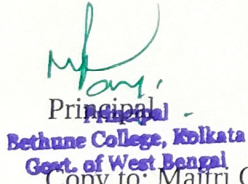 Principal
Principal
Bethune College, Kolkata
Govt. of West Bengal
Copy to: Maitri